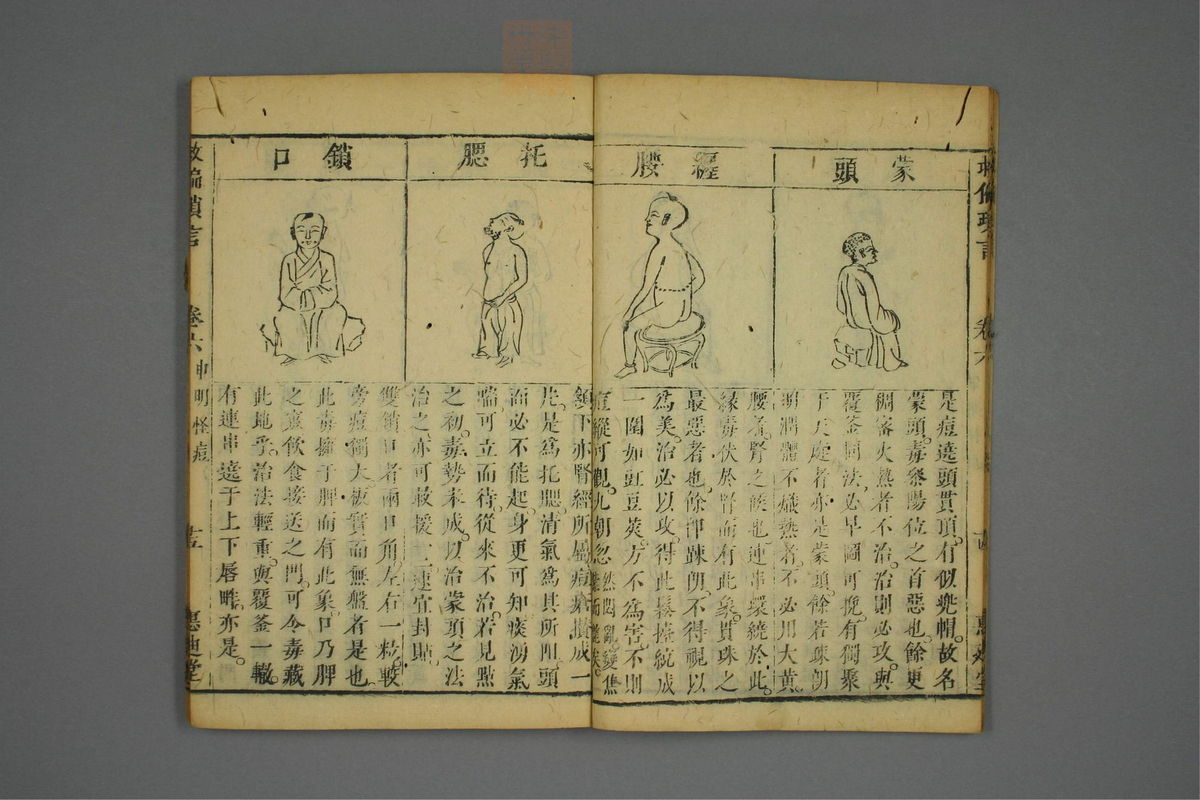 蒙頭
是痘遶頭貫頂。有似兜帽。故名
蒙頭。毒參陽位之首惡也。餘更
稠密火熱者不治。治則必攻。與
覆釜同法。必早圖可挽。有獨聚
于天庭者亦是蒙頭。餘若珠朗
潤澤不熾熱者。不必用大黃。
纏腰
腰者。腎之候也。連串環繞於此。
緣毒伏於腎而有此象。貫珠之
最惡者也。餘即疎朗。不得視以
為美。治必以攻。得此鬆擡統成
一圍如豇豆莢。方不為害。不則
縱可觀。九朝忽然悶亂。變焦
托腮
頷下亦腎經所屬。痘瘡攢成一
片。是為托腮。清氣為其所阻。頭
治必不能起。身更可知。痰湧氣
喘。可立而待。從來不治。若見點
之初。毒勢未成。以治蒙頭之法
治之。亦可救援一二。速宜封貼。
鎖口
雙鎖口者。兩口角。左右一粒。較
旁痘獨大。板實而無盤者是也。
此毒擁于脾而有此象。口乃脾
之竅。飲食接送之門。可令毒藏
此地乎。治法輕重。與覆釜一轍。
有連串遶于上下唇畔。亦是。
救偏瑣言
卷六神明怪痘
十五
惠迪堂
卷六